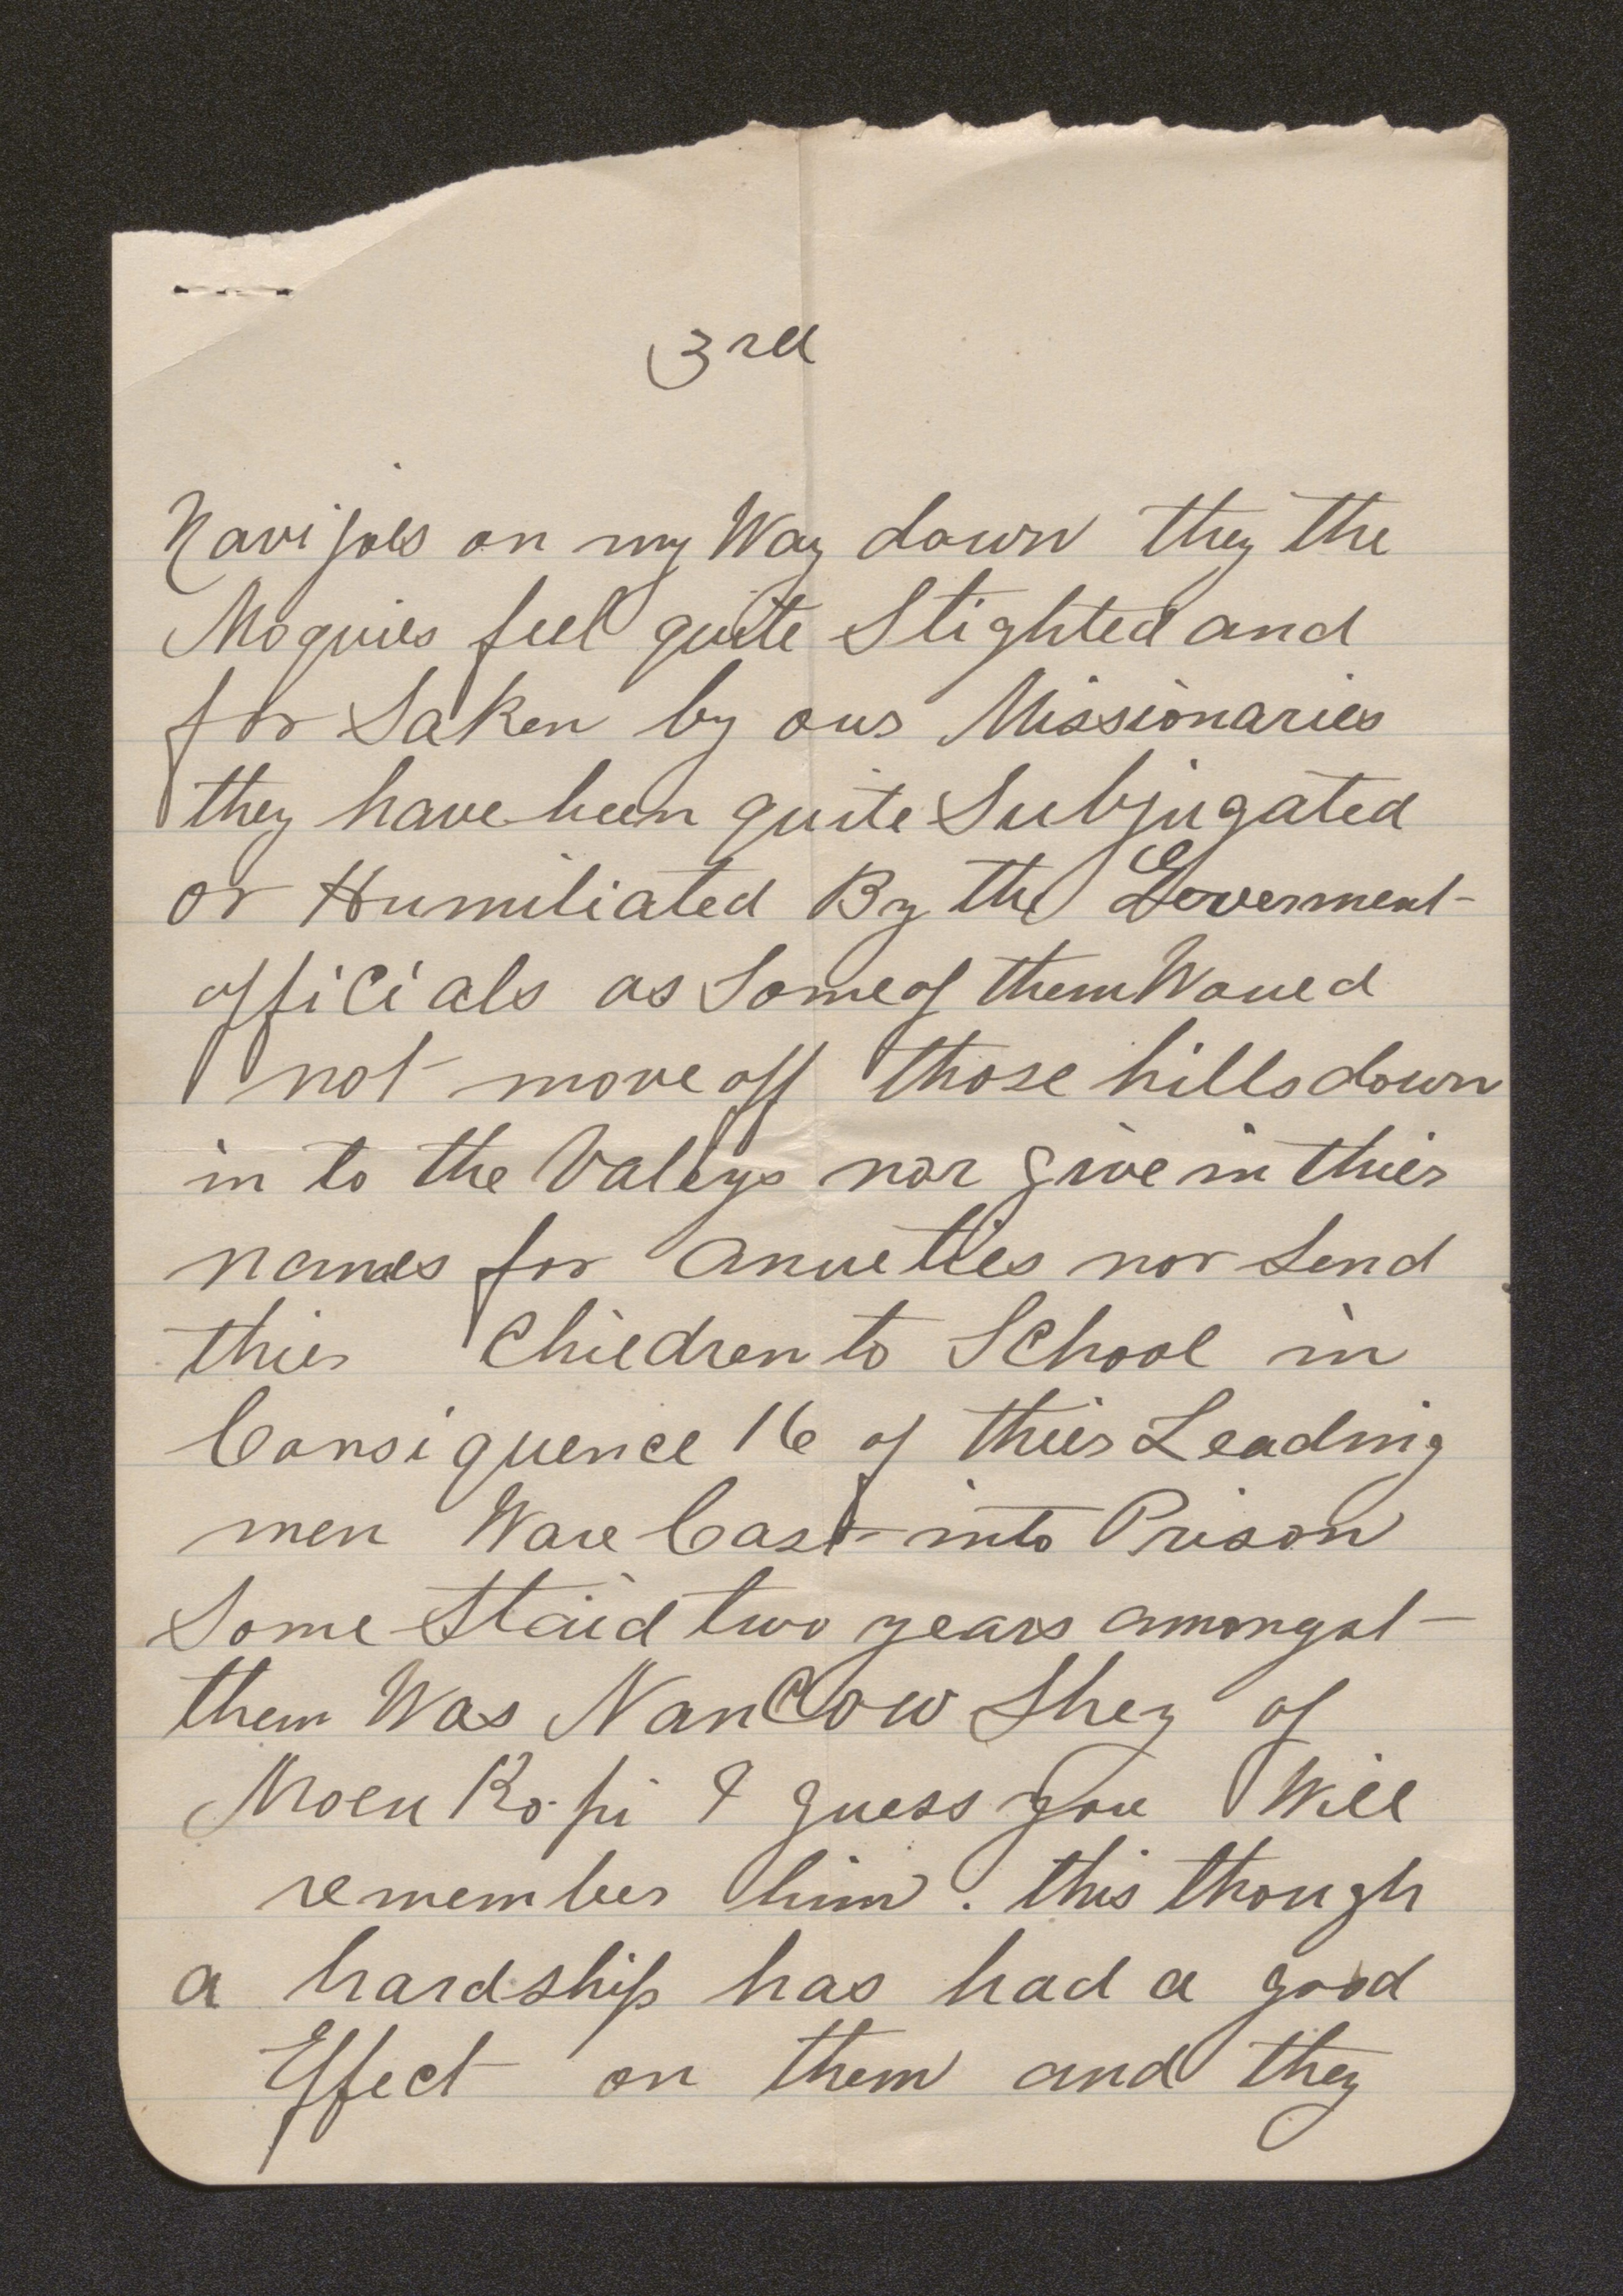 3rd
Navijoes on my Way down they the
Moquies feel quite Slighted and
for Saken by our Missionaries
they have been quite Subjugated
or Humiliated By the Goverment
officials as Some of them Woued
not move off those hills down
in to the Valleys nor give in thier
names for anueties nor Send
thier Children to School in
Consiquence 16 of thier Leading
men Ware Cast into Prison
Some Staid two years amongst
them Was NanCow Shey of
Moen Ko-pi I guess you Will
remember him . this though
a hardship has had a good
Effect on them and they